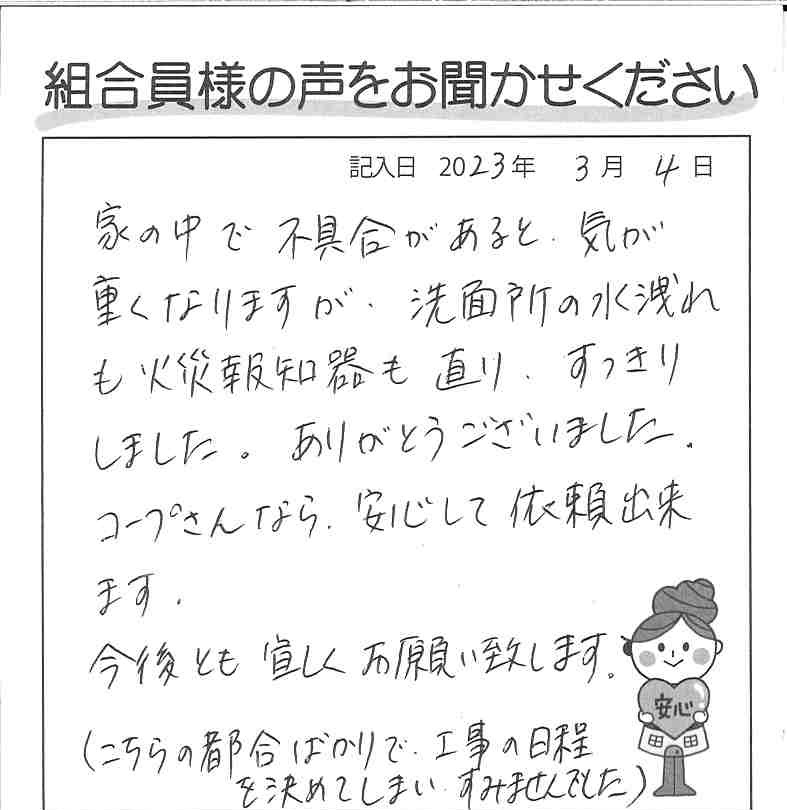 組合員様の声をお聞かせください
記入日 2023年 3月 4日
家の中で不具合があると、気が
重くなりますが、洗面所の水洩れ
も火災報知器も直り、すっきり
しました。ありがとうございました。
コープさんなら、安心して依頼出来
ます。
今後とも宜しくお願い致します。
安心
(こちらの都合ばかりで、工事の日程
を決めてしまい、すみませんでした)